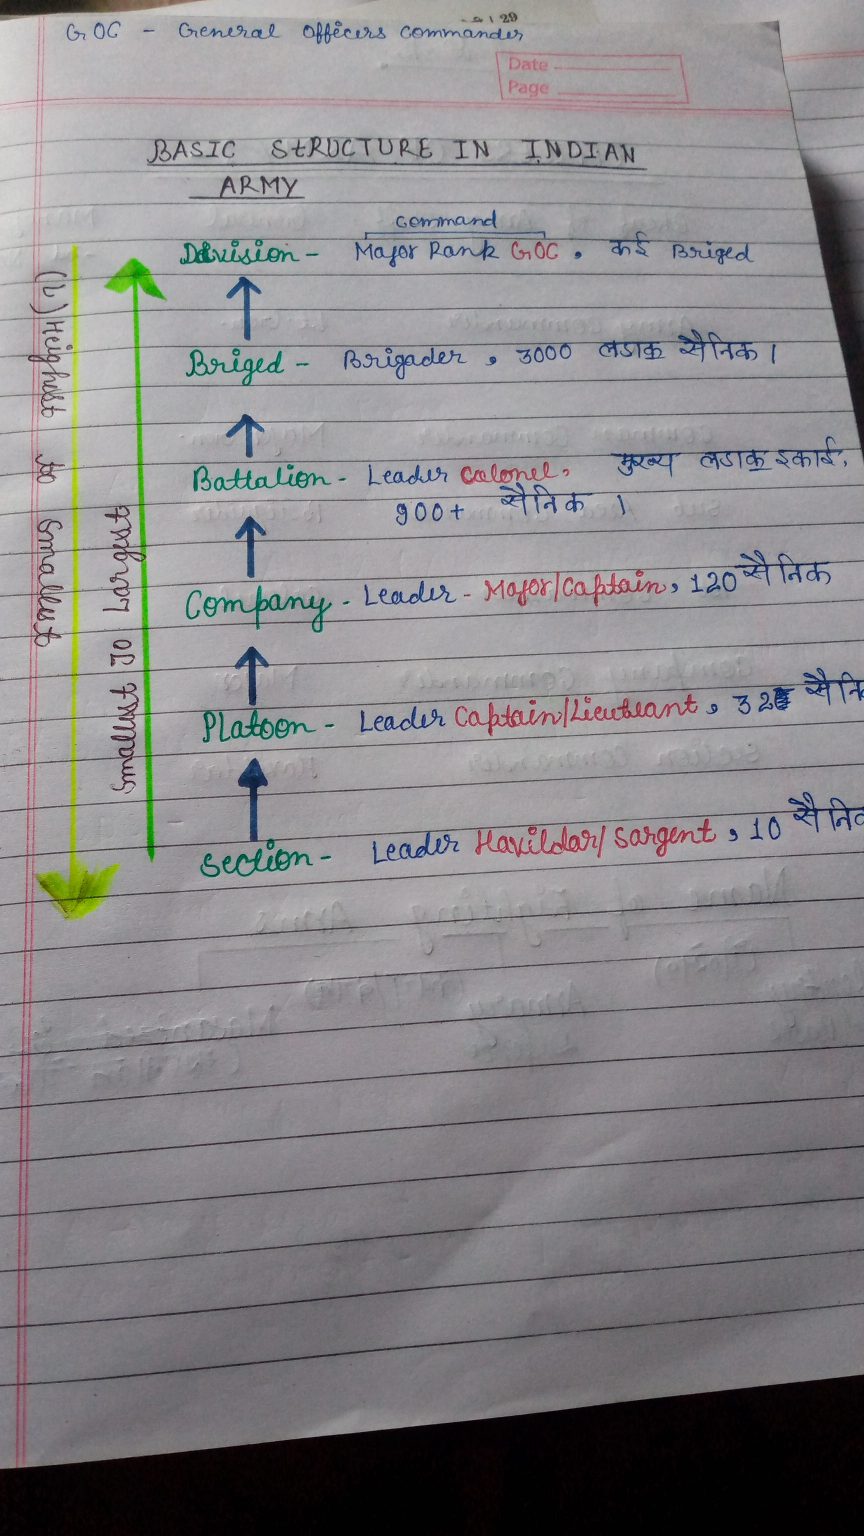 GOC - General Officers commander
Date
Page
BASIC StRUCTURE IN INDIAN
ARMY
command
Division - Major Rank GOC, कई Briged
Briged - Brigader, 3000 लडाकू सैनिक।
Battalion - Leader Calonel, मुख्य लडाकू इकाई,
900+ सैनिक ।
Company - Leader - Major/Captain, 120 सैनिक
Platoon - Leader Captain/Lieuteant, 32 सैनि
Section - Leader Havildar/Sargent, 10 सैनिक
Heighest to Smallest
Smallest To Largest